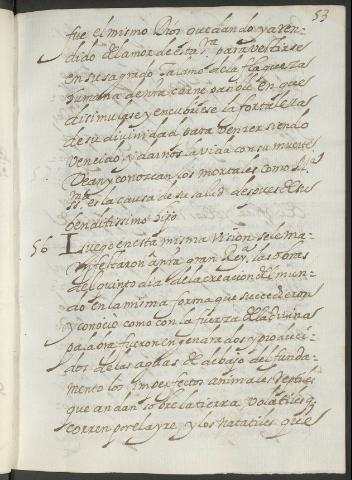 53
fue el mismo Dios quedando ya ren-
dido del amor de esta Sra para vestirse
en su sagrado Talamo de la flaqueza
humana de nra carne passible en que
disimulase y encubriese la fortaleza
de su divinidad para venzer siendo
vencido, y darnos la vida con su muerte
Vean y conozcan los mortales como M.a
SSma es la causa de su salud despues de su
benditissimo Hijo.
56 Luego en esta misma vision se le ma-
nifestaron a nra gran Reyna las obras
del quinto dia de la creacion del mun-
do en la misma forma que succedieron
y conocio como con la fuerza de la divina
palabra fueron engendrados y produci-
dos de las aguas de debajo del firma-
mento los imperfectos animales reptiles
que andan sobre la tierra volatiles q
corren por el ayre, y los natatiles que